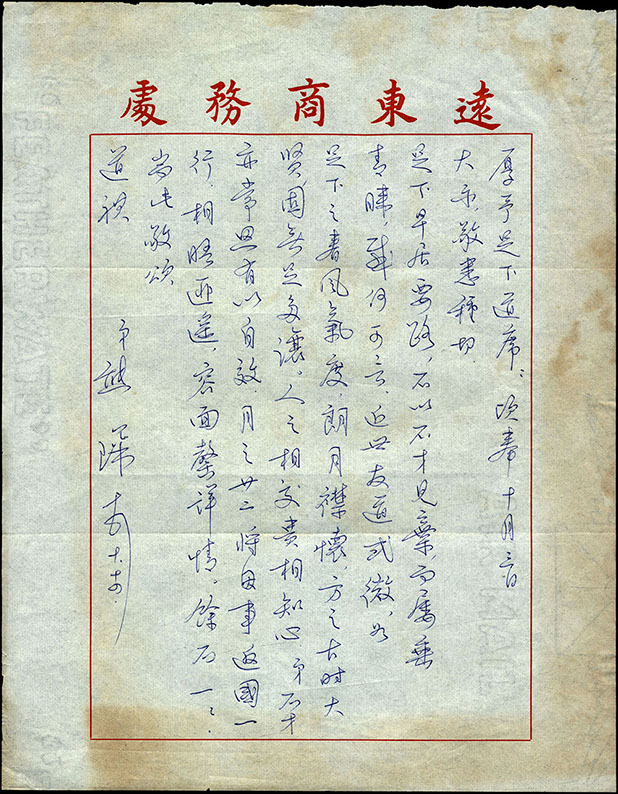 遠東商務處
厚予足下道席：頃奉十月三日
大示，敬悉種切。
足下早居要路，不以不才見棄，而屢垂
青睞，感何可言，近世友道式微，如
足下之春風氣度，朗月襟懷，方之古时大
賢固無足多讓。人之相交貴相知心 弟不才
亦常思有以自效。月之廿二將因事返國一
行，相晤匪遙，容面罄詳情。餘不一一。
耑此敬頌
道祺
弟